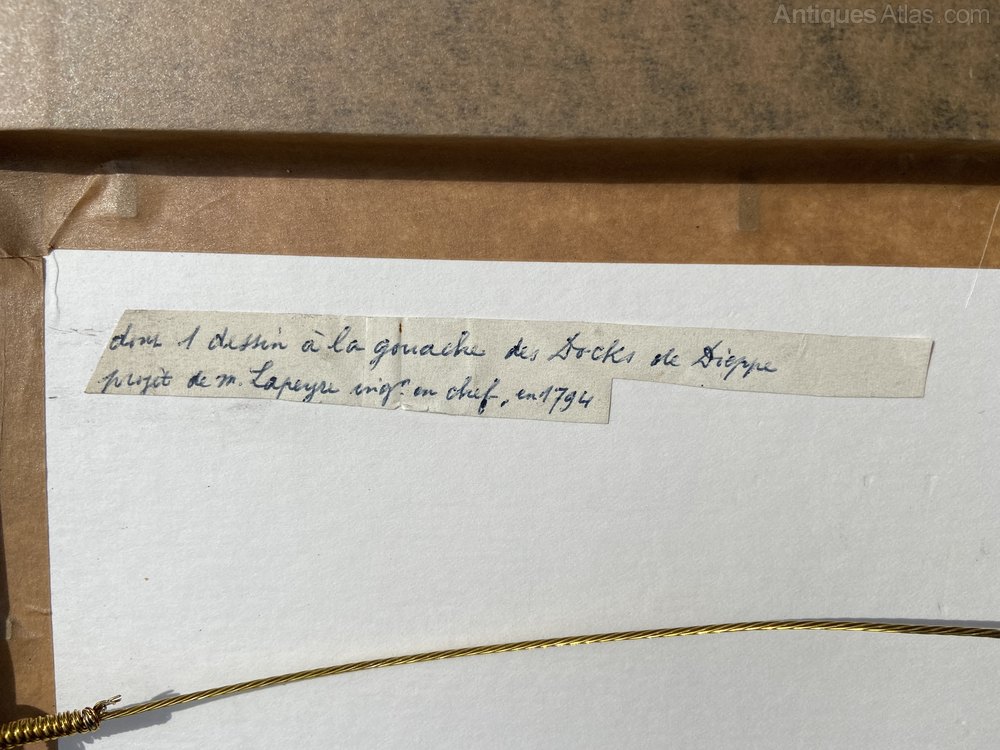 AntiquesAtlas.com
dont 1 dessin à la gouache des Docks de Dieppe
projèt de m. Lapeyre ingr. en chef, en 1794